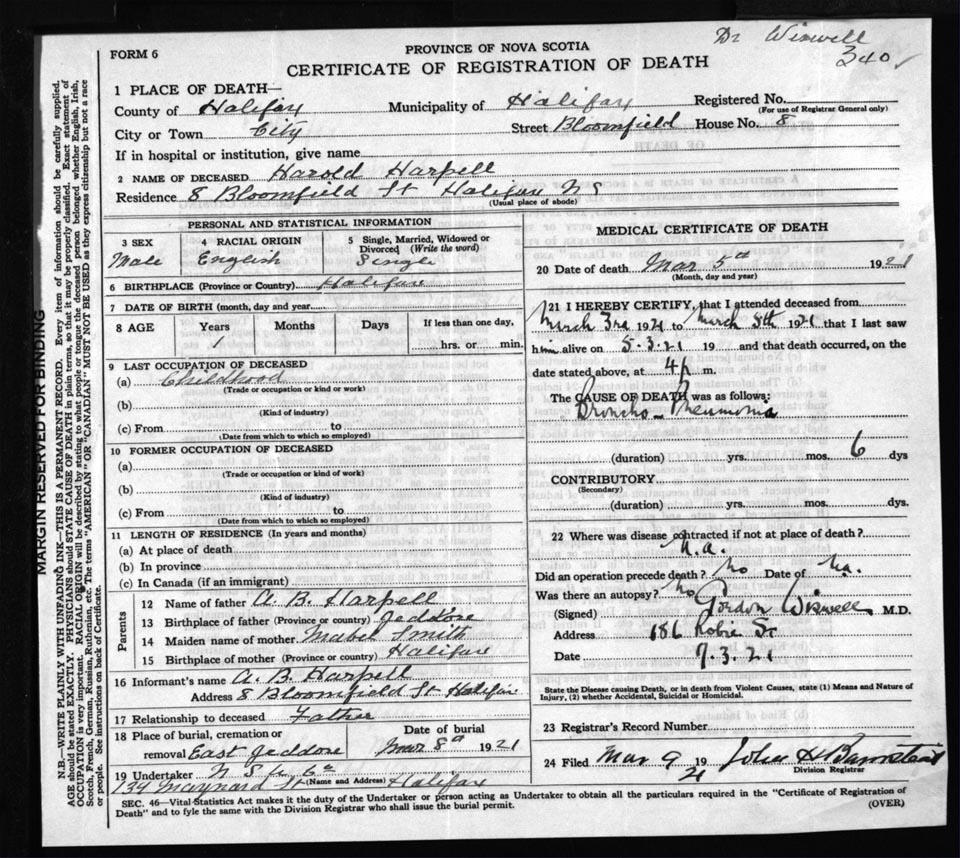 Dr Wiswell
340
FORM 6
PROVINCE OF NOVA SCOTIA
CERTIFICATE OF REGISTRATION OF DEATH
1 PLACE OF DEATH—
County of Halifax Municipality of Halifax Registered No.
(For use of Registrar General only)
City or Town City Street Bloomfield House No. 8
If in hospital or institution, give name
2 NAME OF DECEASED Harold Harpell
Residence 8 Bloomfield St Halifax N S
(Usual place of abode)
PERSONAL AND STATISTICAL INFORMATION
3 SEX 4 RACIAL ORIGIN 5 Single, Married, Widowed or Divorced (Write the word)
Male English Single
6 BIRTHPLACE (Province or Country) Halifax
7 DATE OF BIRTH (month, day and year)
8 AGE Years Months Days If less than one day,
1 hrs. or min.
9 LAST OCCUPATION OF DECEASED
(a) Childhood
(Trade or occupation or kind of work)
(b)
(Kind of industry)
(c) From to
(Date from which to which so employed)
10 FORMER OCCUPATION OF DECEASED
(a)
(Trade or occupation or kind of work)
(b)
(Kind of industry)
(c) From to
(Date from which to which so employed)
11 LENGTH OF RESIDENCE (In years and months)
(a) At place of death
(b) In province
(c) In Canada (if an immigrant)
Parents
12 Name of father A. B. Harpell
13 Birthplace of father (Province or country) Jeddore
14 Maiden name of mother Mabel Smith
15 Birthplace of mother (Province or country) Halifax
16 Informant's name A. B. Harpell
Address 8 Bloomfield St Halifax
17 Relationship to deceased Father
18 Place of burial, cremation or Date of burial
removal East Jeddore Mar 8th 1921
19 Undertaker N S
(Name and Address)
134 Maynard St Halifax
MEDICAL CERTIFICATE OF DEATH
20 Date of death Mar 5th 1921
(Month, day and year)
21 I HEREBY CERTIFY, that I attended deceased from
March 3rd 1921 to March 5th 1921 that I last saw
him alive on 5.3.21 19 and that death occurred, on the
date stated above, at 4 p m.
The CAUSE OF DEATH was as follows:
Broncho-Pneumonia
(duration) yrs. mos. 6 dys
CONTRIBUTORY
(Secondary)
(duration) yrs. mos. dys.
22 Where was disease contracted if not at place of death?
n.a.
Did an operation precede death? no Date of n.a.
Was there an autopsy? no
(Signed) Gordon Wiswell M.D.
Address 186 Robie St
Date 7.3.21
State the Disease causing Death, or in death from Violent Causes, state (1) Means and Nature of
Injury, (2) whether Accidental, Suicidal or Homicidal.
23 Registrar's Record Number
24 Filed Mar 9 1921 John H Barnstead
Division Registrar
SEC. 46—Vital Statistics Act makes it the duty of the Undertaker or person acting as Undertaker to obtain all the particulars required in the "Certificate of Registration of
Death" and to fyle the same with the Division Registrar who shall issue the burial permit. (OVER)
MARGIN RESERVED FOR BINDING
N.B.—WRITE PLAINLY WITH UNFADING INK—THIS IS A PERMANENT RECORD. Every item of information should be carefully supplied.
AGE should be stated EXACTLY. PHYSICIANS should STATE CAUSE OF DEATH in plain terms, so that it may be properly classified. Exact statement of
OCCUPATION is very important. RACIAL ORIGIN will be described by stating to what people or tongue the deceased person belonged whether English, Irish,
Scotch, French, German, Russian, Ruthenian, etc. The terms "AMERICAN" OR "CANADIAN" MUST NOT BE USED as they express citizenship but not a race
or people. See instructions on back of Certificate.